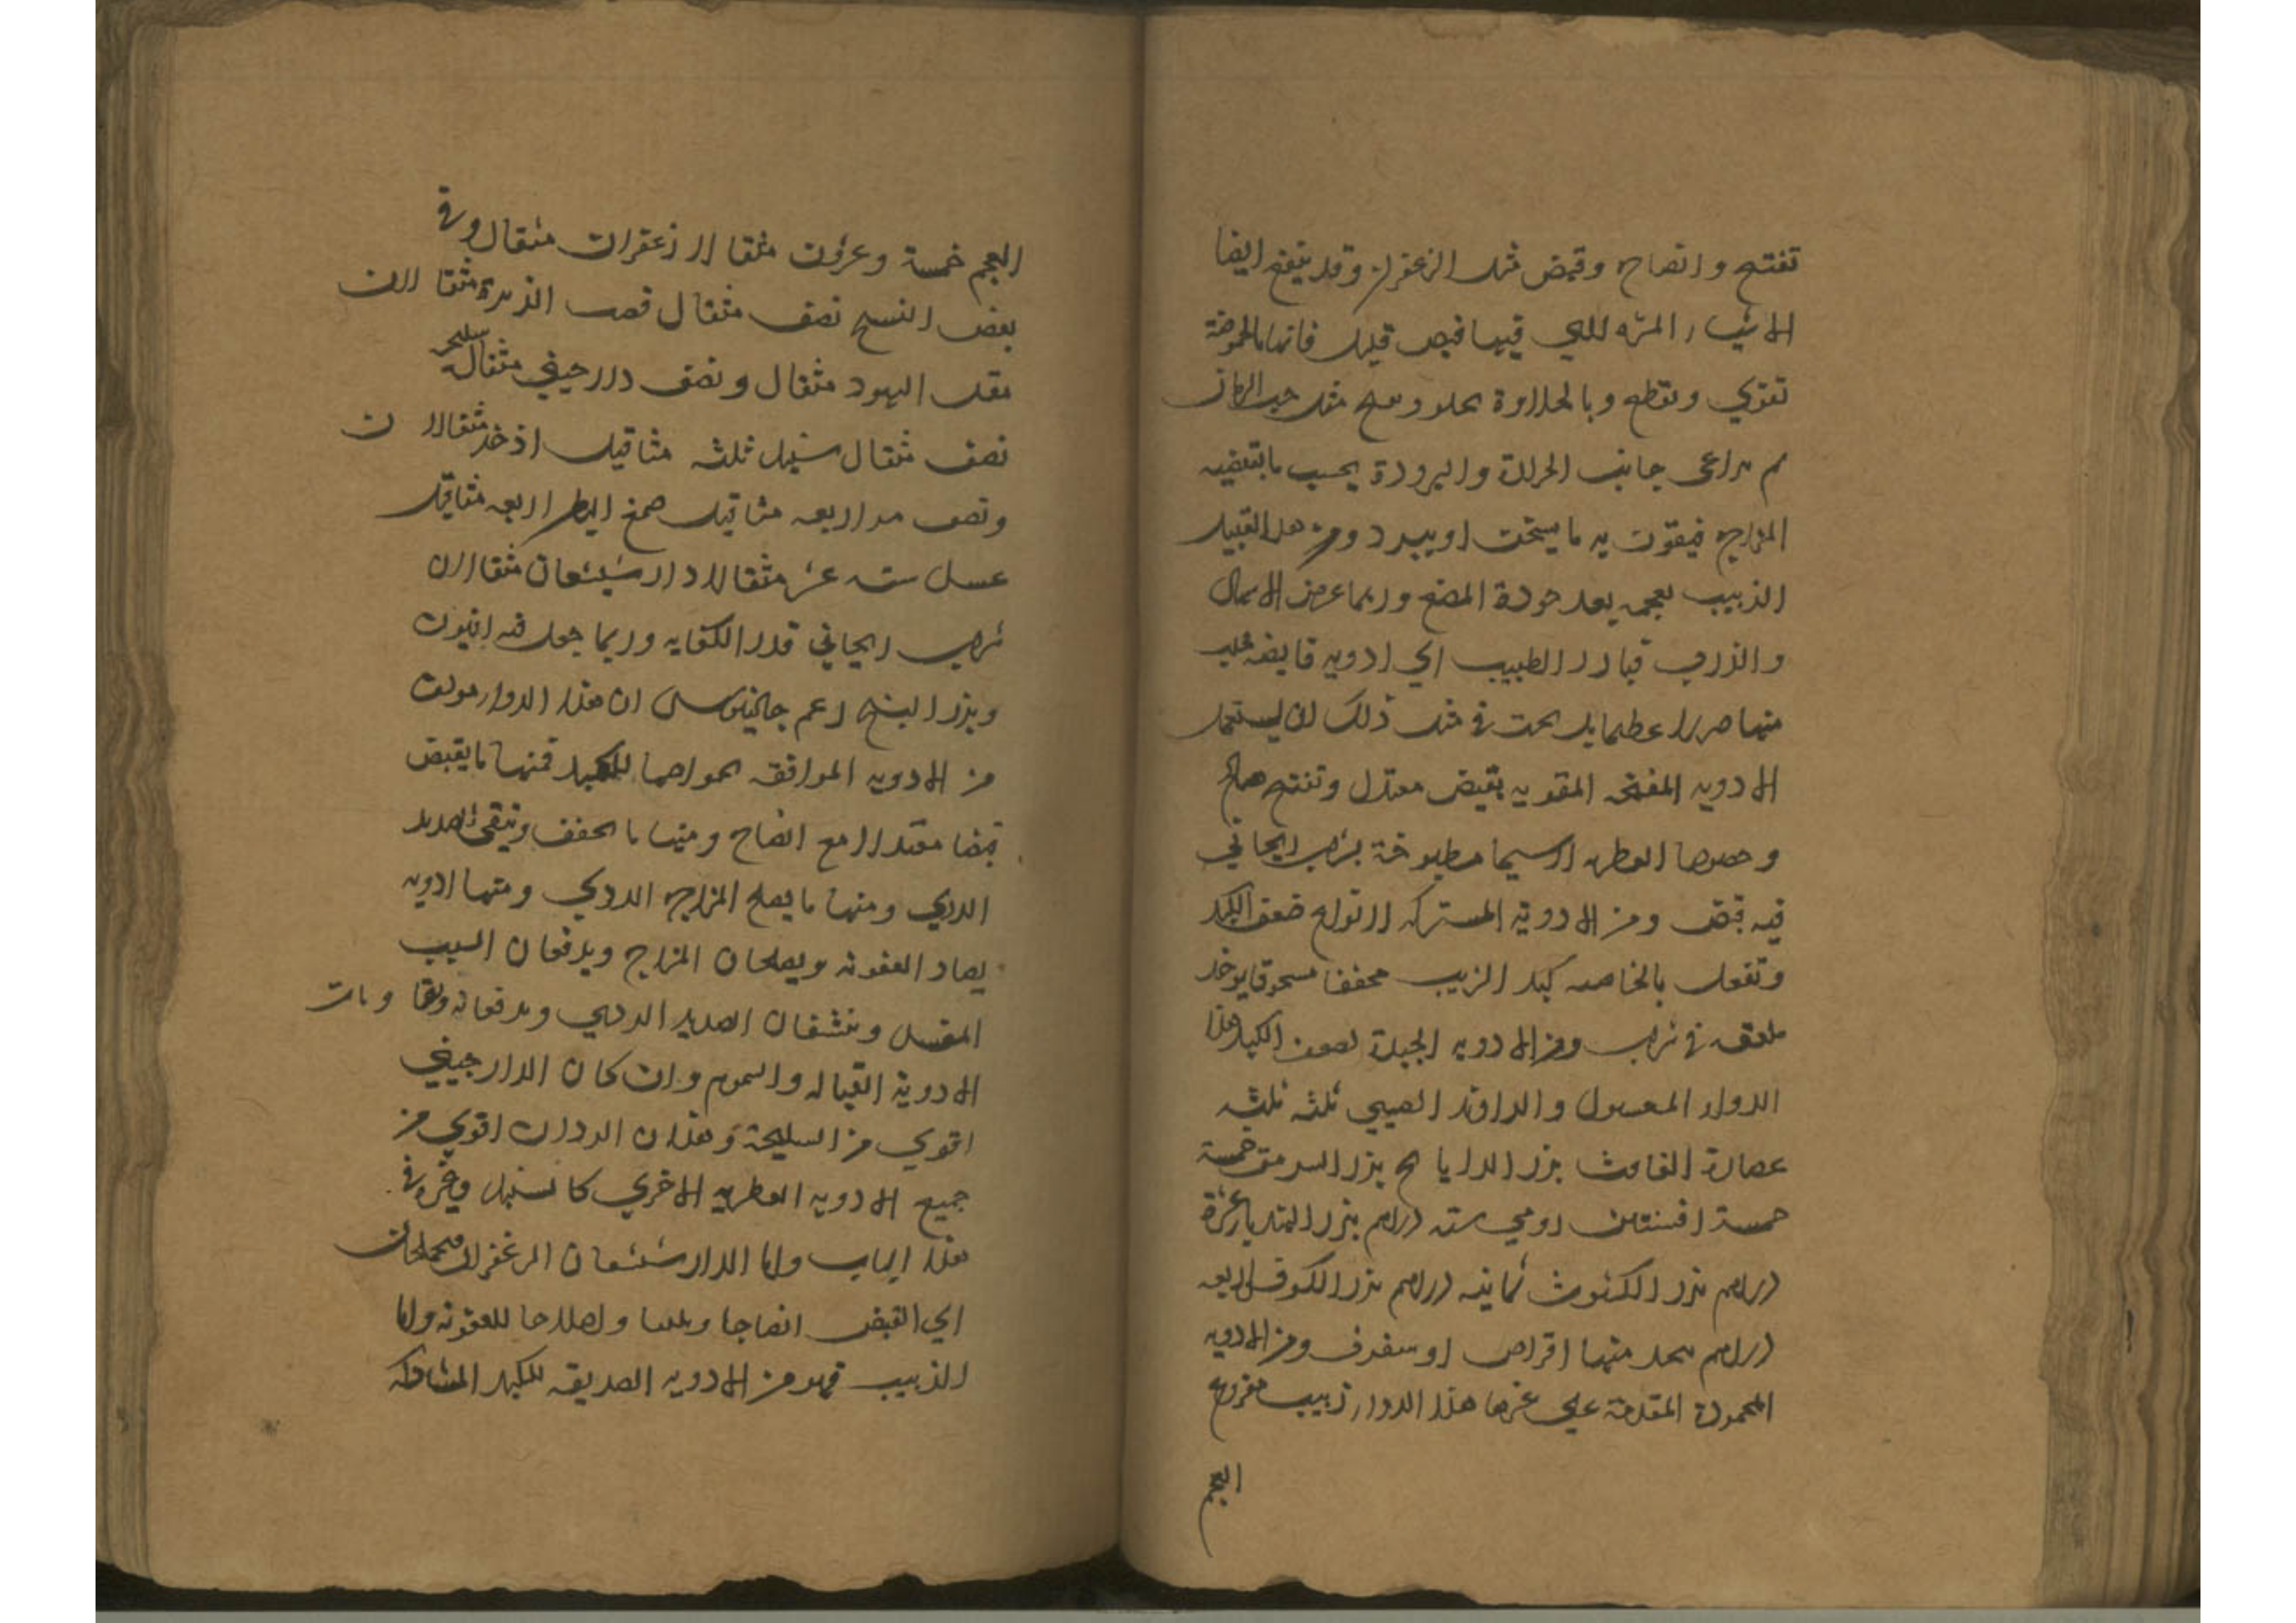 تفتيح وانضاج وقبض مثل الزعفران وقد ينفع ايضا
الاشياء المزه للتي فيها قبض قليل فانها بالحموضة
تقوي وتقطع وبالحلاوة تجلو مثل حب الرمان
ثم يراعى جانب الحرارة والبرودة بحسب ما يقتضيه
المزاج فيقرن به ما يسخن او يبرد ومن هذا القبيل
الزبيب بعجمه بعد جودة المضغ وربما عرض الاسهال
والذرب فبادر الطبيب الي ادويه قابضه فجلب
منها ضررا عظيما بل يجب في مثل ذلك ان يستعمل
الادويه المفتحه المقويه بقبض معتدل وتفتيح صالح
وخصوصا العطريه لا سيما مطبوخة بشراب ريحاني
فيه قبض ومن الادوية المشتركه لانواع ضعف الكبد
وتفعل بالخاصيه كبد الذيب مجففا مسحوقا يوخذ
ملعقه في شراب ومن الادويه الجيدة لضعف الكبد هذا
الدواء المغسول والراوند الصيني ثلثه ثلثه
عصارة الغافث بزر الرازيانج بزر السرمق خمسة
خمسة افسنتين رومي سته دراهم بزر الهندبا عشرة
دراهم بزر الكشوث ثمانيه دراهم بزر الكرفس اربعه
دراهم يتخذ منها اقراص او سفوف ومن الادويه
المحمودة المقدمة علي غيرها هذا الدواء زبيب منزوع
العجم
العجم خمسة وعشرون مثقالا زعفران مثقال وفي
بعض النسخ نصف مثقال قصب الذريره مثقالان
مقل اليهود مثقال ونصف دارصيني مثقال سليخه
نصف مثقال سنبل ثلثه مثاقيل اذخر مثقالان
ونصف مر اربعه مثاقيل صمغ البطم اربعه مثاقيل
عسل سته عشر مثقالا دارشيشعان مثقالان
شراب ريحاني قدر الكفايه وربما جعل فيه افيون
وبزر البنج زعم جالينوس ان هذا الدواء مولف
من الادويه الموافقه بخواصها للكبد فمنها ما يقبض
قبضا معتدلا مع انضاج ومنها ما يجفف وينقي الصديد
الردي ومنها ما يصلح المزاج الردي ومنها ادويه
يضاد العفونه ويصلحان المزاج ويدفعان السبب
المفسد وينشفان الصديد الردي ويدفعانه
الادوية القتاله والسموم وان كان الدارصيني
اقوي من السليخة وهذان الدواان اقوي من
جميع الادويه العطريه الاخري كالسنبل وغيره في
هذا الباب واما الدارشيشعان الزعفران فيجمعان
الي القبض انضاجا وتليينا واصلاحا للعفونه واما
الزبيب فهو من الادويه الصديقه للكبد المشاكله